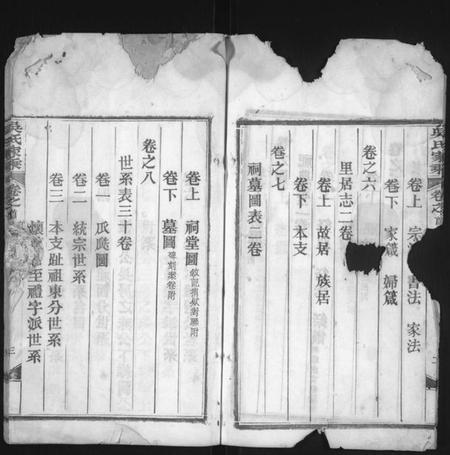 吳氏家乘
卷之首
卷上 宗 書法 家法
卷下 家箴 婦箴
卷之六
里居志二卷
卷上 故居 族居
卷下 本支
卷之七
祠墓圖表二卷
卷上 祠堂圖
卷下 墓圖
卷之八
世系表三十卷
卷一 瓜瓞圖
卷二 統宗世系
卷三 本支趾祖東分世系
至禮字派世系
吳氏家乘
卷之首